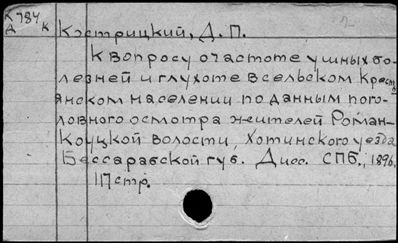 К 784
Д к
Кострицкий, Д. П.
К вопросу о частоте ушных бо-
лезней и глухоте в сельском крест
янском населении по данным пого-
ловного осмотра жителей Роман-
Коуцкой волости, Хотинского уезда
Бессарабской губ. Дисс. СПб., 1896.
117 стр.